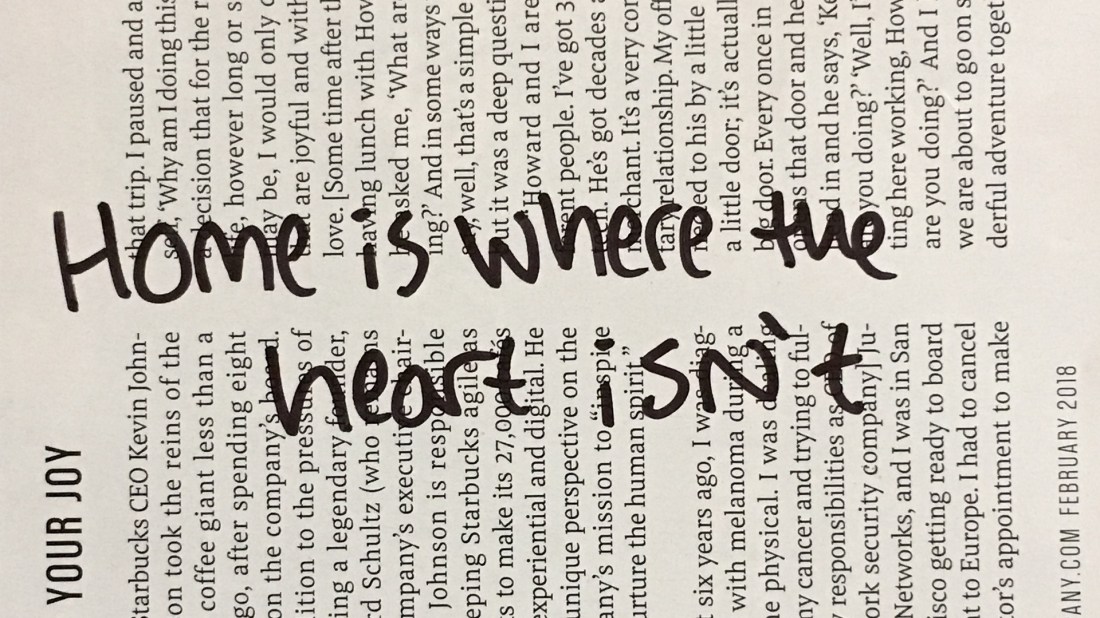 Home is where the
heart isn't
YOUR JOY
Starbucks CEO Kevin John-
on took the reins of the
coffee giant less than a
go, after spending eight
on the company's
ition to the pressures of
ing a legendary founder,
d Schultz (who remains
mpany's executive chair-
Johnson is responsible
eping Starbucks agile as
s to make its 27,000
experiential and digital. He
unique perspective on the
any's mission to “inspire
urture the human spirit.”
t six years ago, I was diag-
with melanoma during a
e physical. I was
my cancer and trying to ful-
y responsibilities as of
ork security company] Ju-
Networks, and I was in San
isco getting ready to board
t to Europe. I had to cancel
tor's appointment to make
that trip. I paused and a
‘Why am I doing this
decision that for the r
however long or s
may be, I would only
are joyful and with
love. [Some time after t
having lunch with How
asked me, ‘What ar
ing?’ And in some ways
well, that's a simple
ut it was a deep questi
Howard and I are
people. I've got 3
He's got decades
merchant. It's a very
relationship. My off
to his by a little
a little door; it's actuall
big door. Every once in
that door and he
in and he says, ‘Ke
you doing?’ ‘Well, I'
ting here working, How
are you doing?’ And I
we are about to go on s
derful adventure toget
ANY.COM FEBRUARY 2018